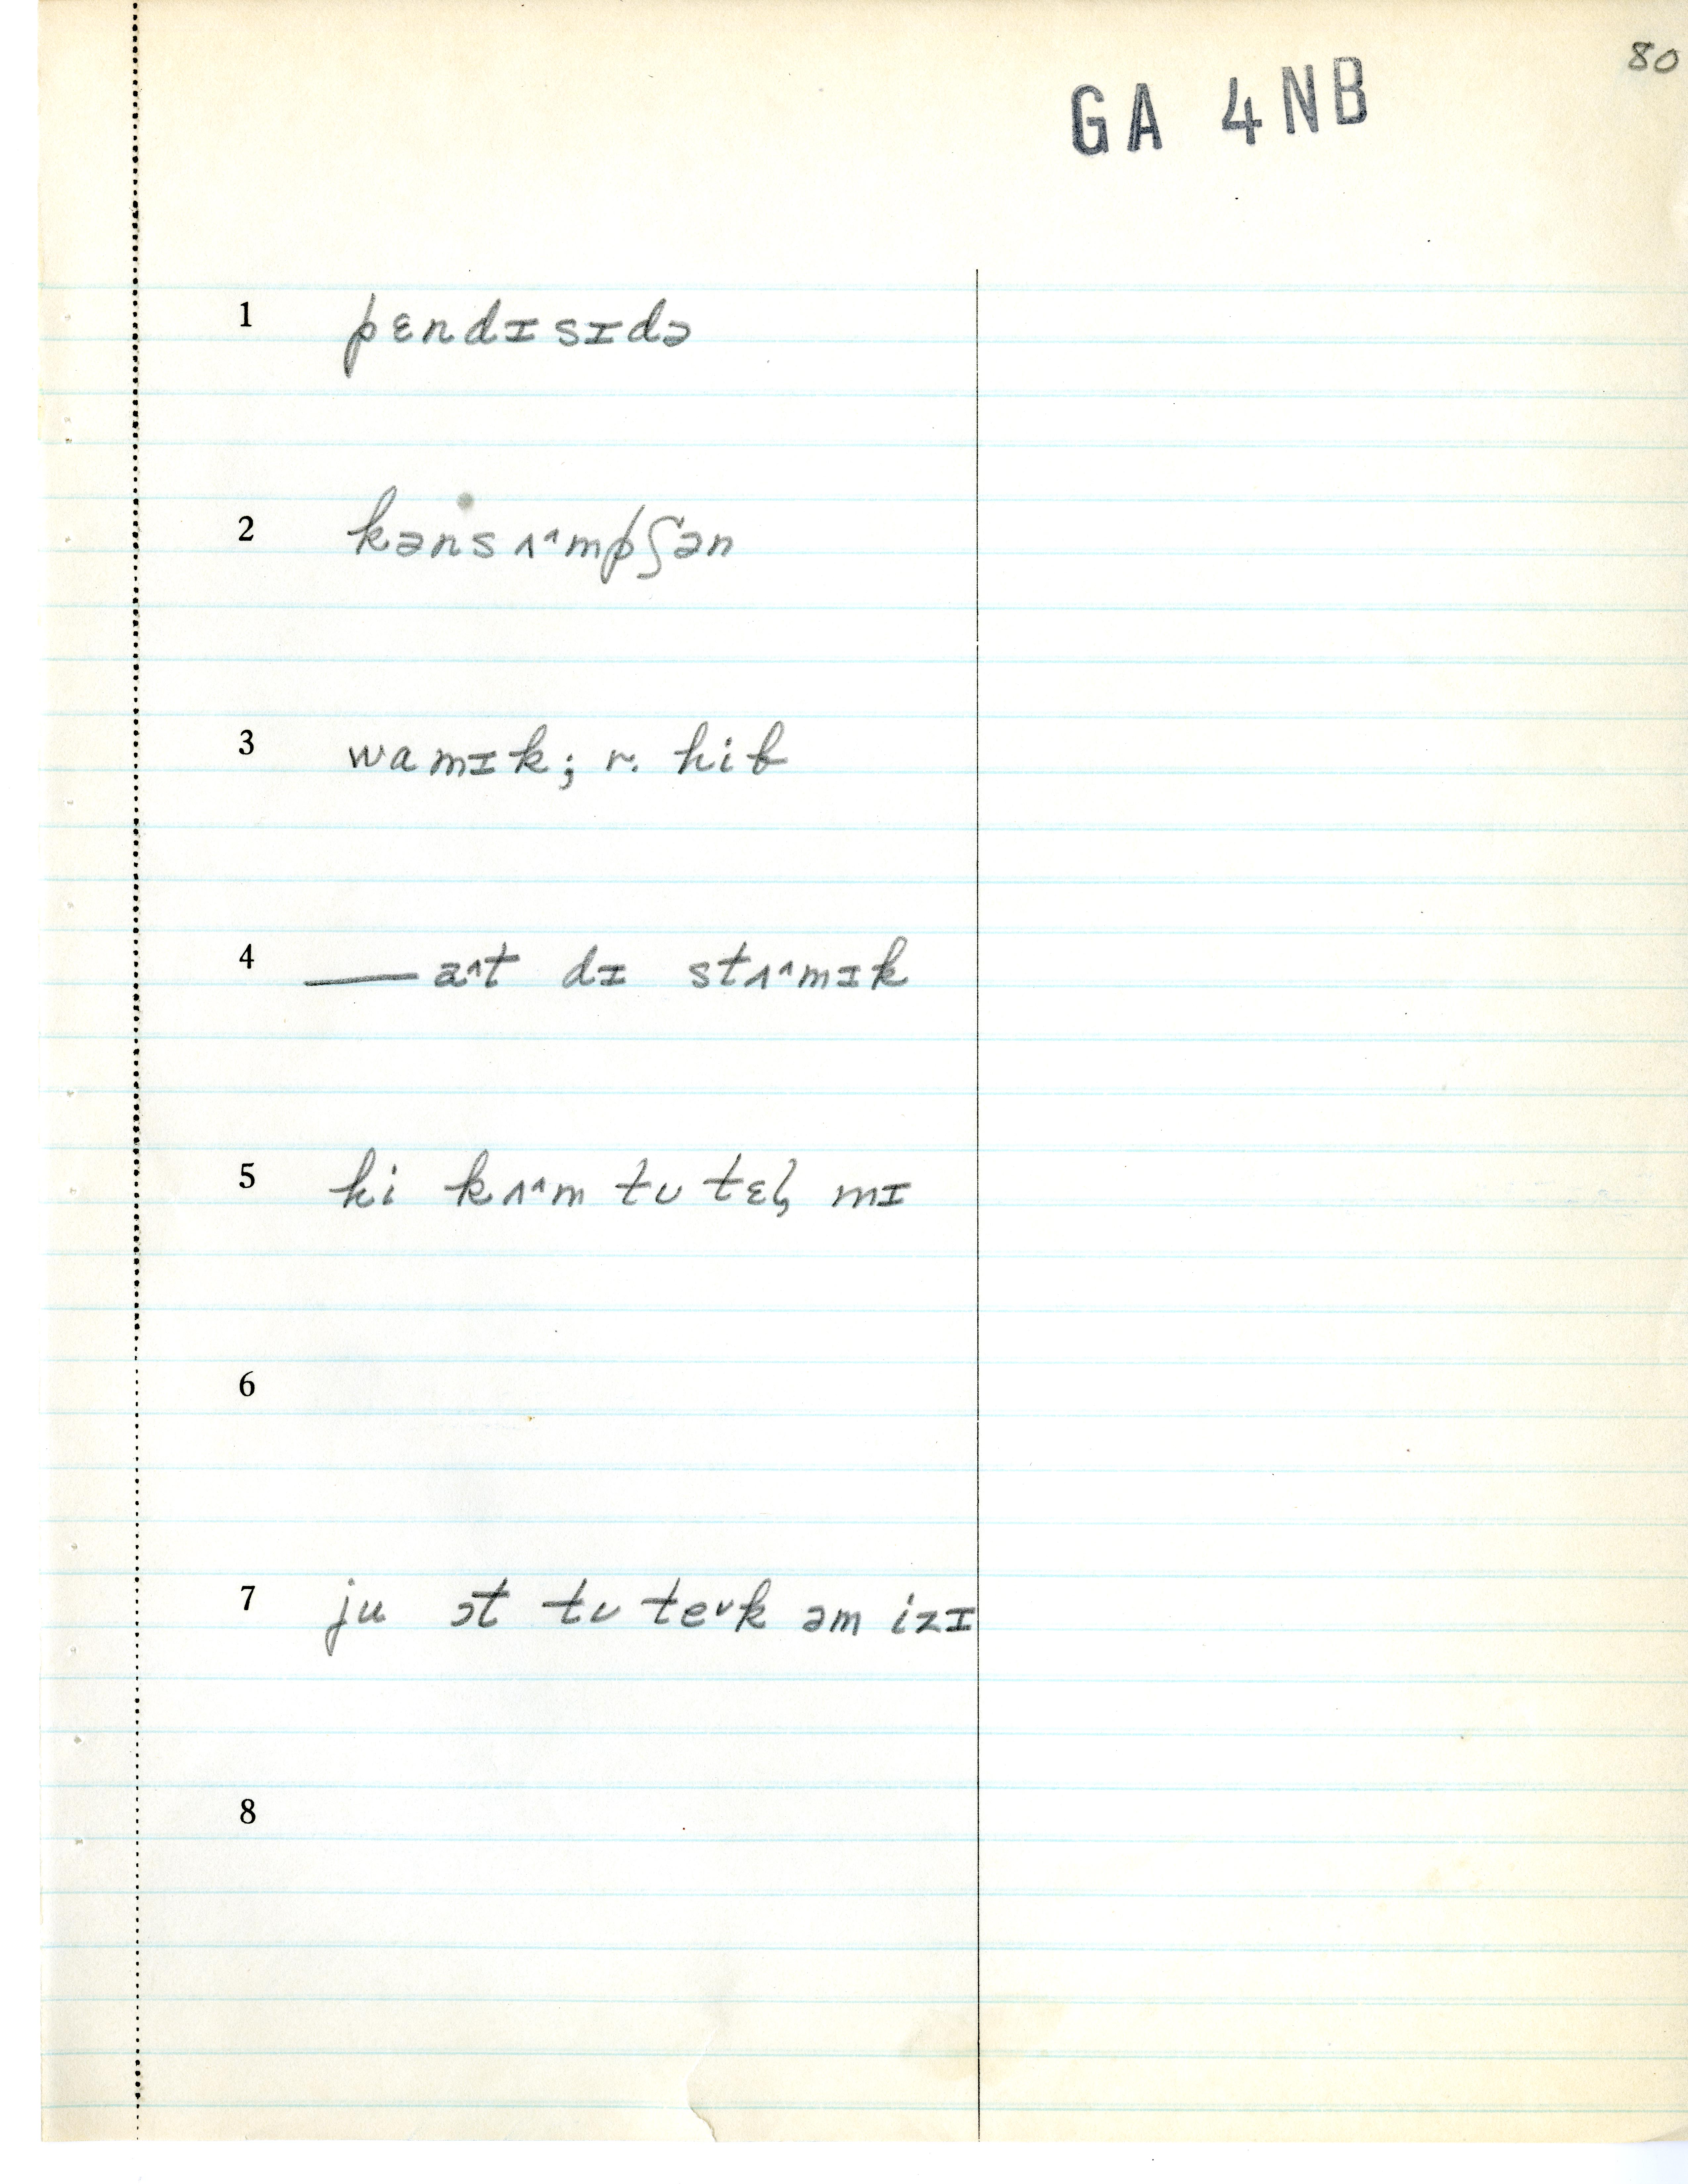 80
GA 4NB
1 pɛndɪsɪdə
2 kənsʌ^mpʃən
3 wamɪk; r. hib
4 —— a^t dɪ stʌ^mɪk
5 hi kʌ^m tʊ tɛɫ mɪ
6
7 ju ɔt tʊ teᵛk əm izɪ
8